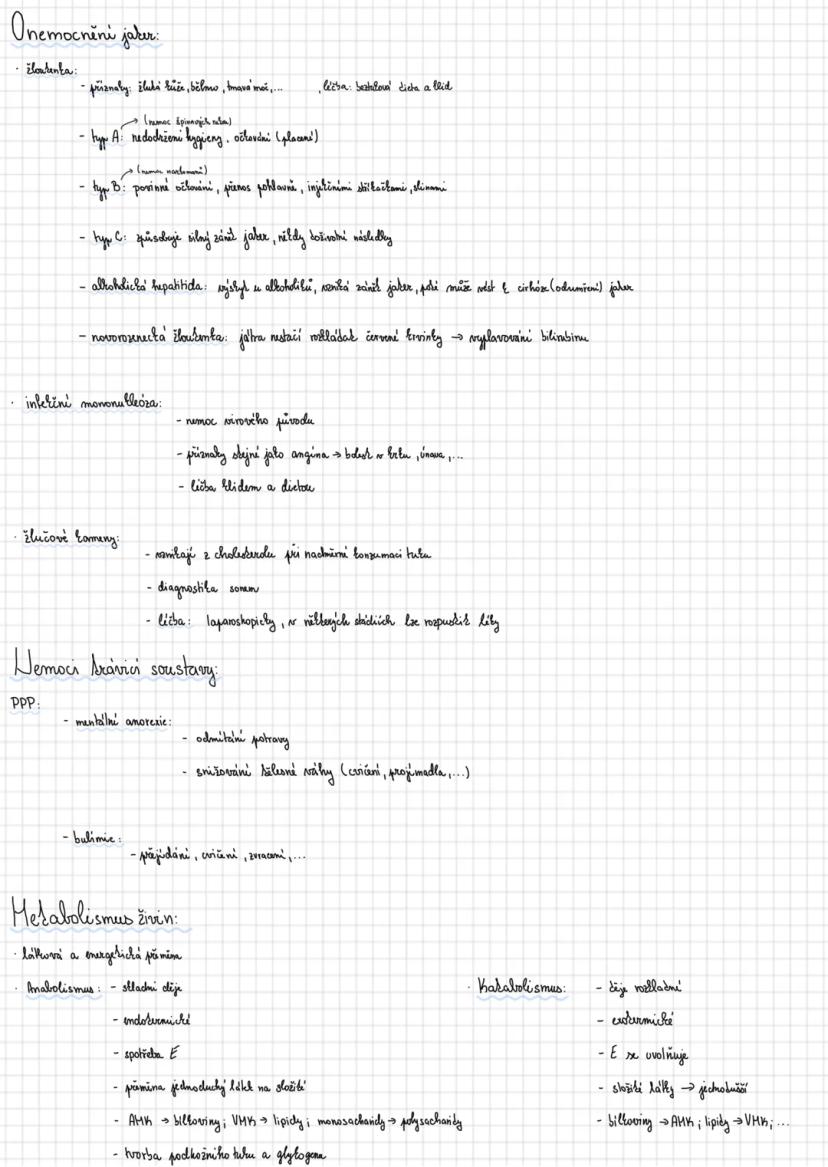 Onemocnění jater:
· žloutenka:
- příznaky: žlutá kůže, bělmo, tmavá moč,... , léčba: beztuková dieta a klid
(nemoc špinavých rukou)
- typ A: nedodržení hygieny, očkování (placení)
(nemoc narkomanů)
- typ B: povinné očkování, přenos pohlavně, injekčními stříkačkami, slinami
- typ C: způsobuje silný zánět jater, někdy doživotní následky
- alkoholická hepatitida: výskyt u alkoholiků, vzniká zánět jater, poté může vést k cirhóze (odumření) jater
- novorozenecká žloutenka: játra nestačí rozkládat červené krvinky → vyplavování bilirubinu
· infekční mononukleóza:
- nemoc virového původu
- příznaky stejné jako angína → bolest v krku, únava,...
- léčba klidem a dietou
· žlučové kameny:
- vznikají z cholesterolu při nadměrné konzumaci tuku
- diagnostika sonem
- léčba: laparoskopicky, v některých stádiích lze rozpustit léky
Nemoci trávící soustavy:
PPP:
- mentální anorexie:
- odmítání potravy
- snižování tělesné váhy (cvičení, projímadla,...)
- bulimie:
- přejídání, cvičení, zvracení,...
Metabolismus živin:
· látková a energetická přeměna
· Anabolismus: - skladní děje · Katabolismus: - děje rozkladní
- endotermické - exotermické
- spotřeba E - E se uvolňuje
- přeměna jednoduchý látek na složité - složité látky → jednodušší
- AMK → bílkoviny; VMK → lipidy; monosacharidy → polysacharidy - bílkoviny → AMK; lipidy → VMK;...
- tvorba podkožního tuku a glykogenu